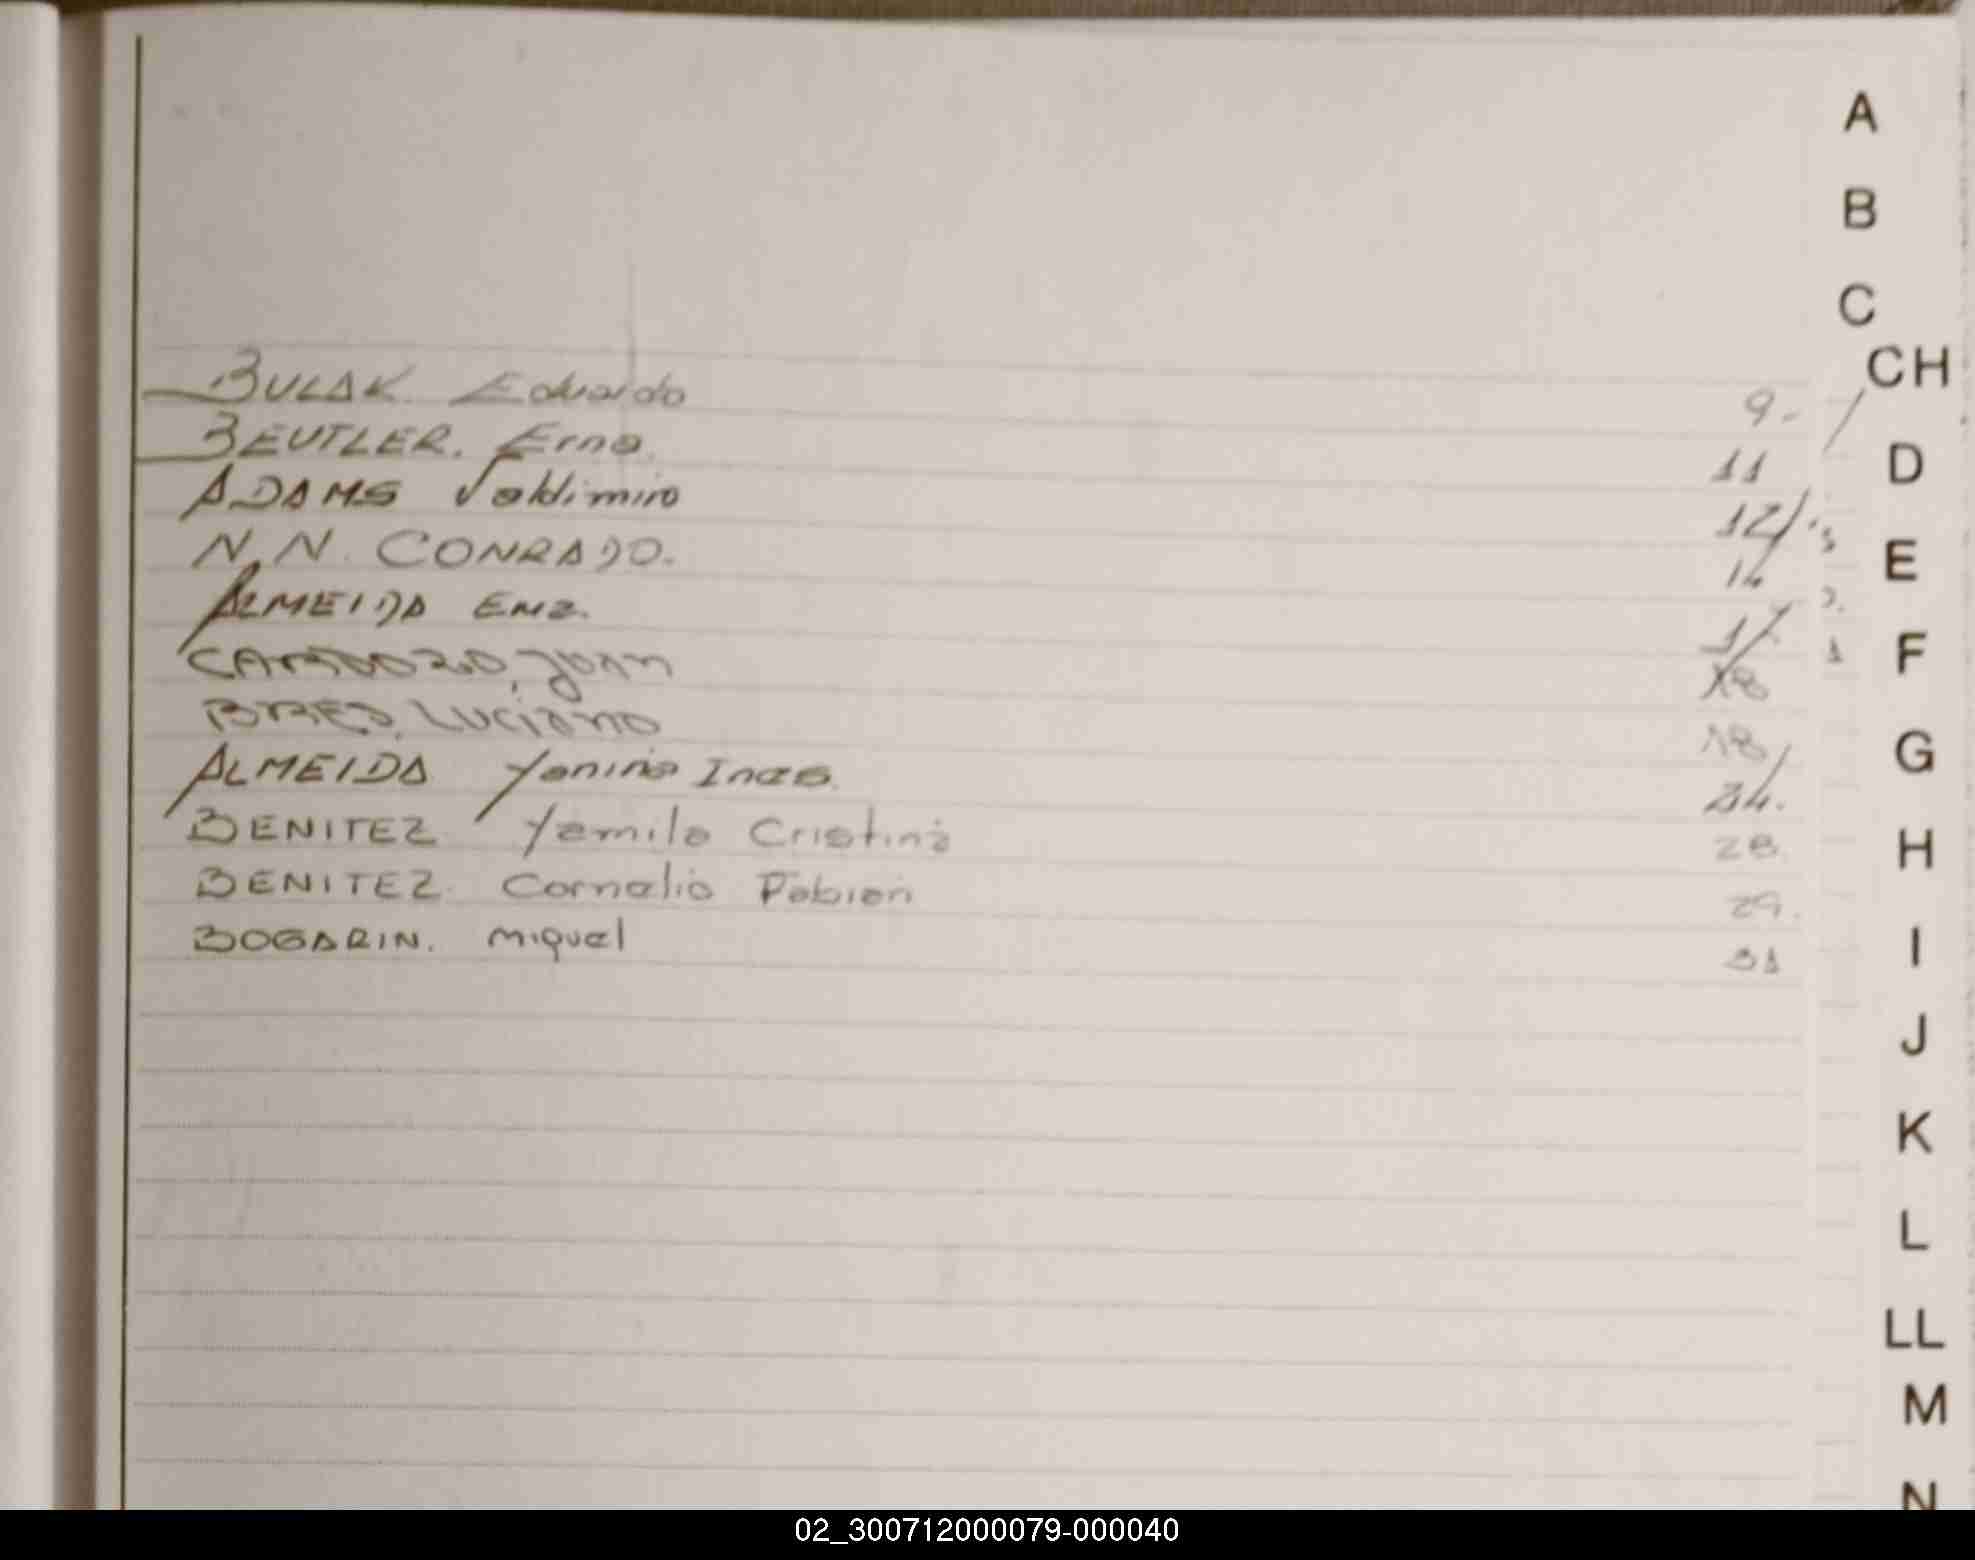 A
B
C
CH
BULAK. Eduardo 9-
BEUTLER. Erna. 11 D
ADAMS Valdimiro 12
N.N. CONRADO. 14 E
ALMEIDA Ema. 17
CARDOZO, Juan 18 F
BRES, Luciano 18 G
ALMEIDA Yanina Ines. 24.
BENITEZ Yamila Cristina 28 H
BENITEZ. Cornelio Fabian 29.
BOGARIN. Miguel 31 I
J
K
L
LL
M
N
02_300712000079-000040